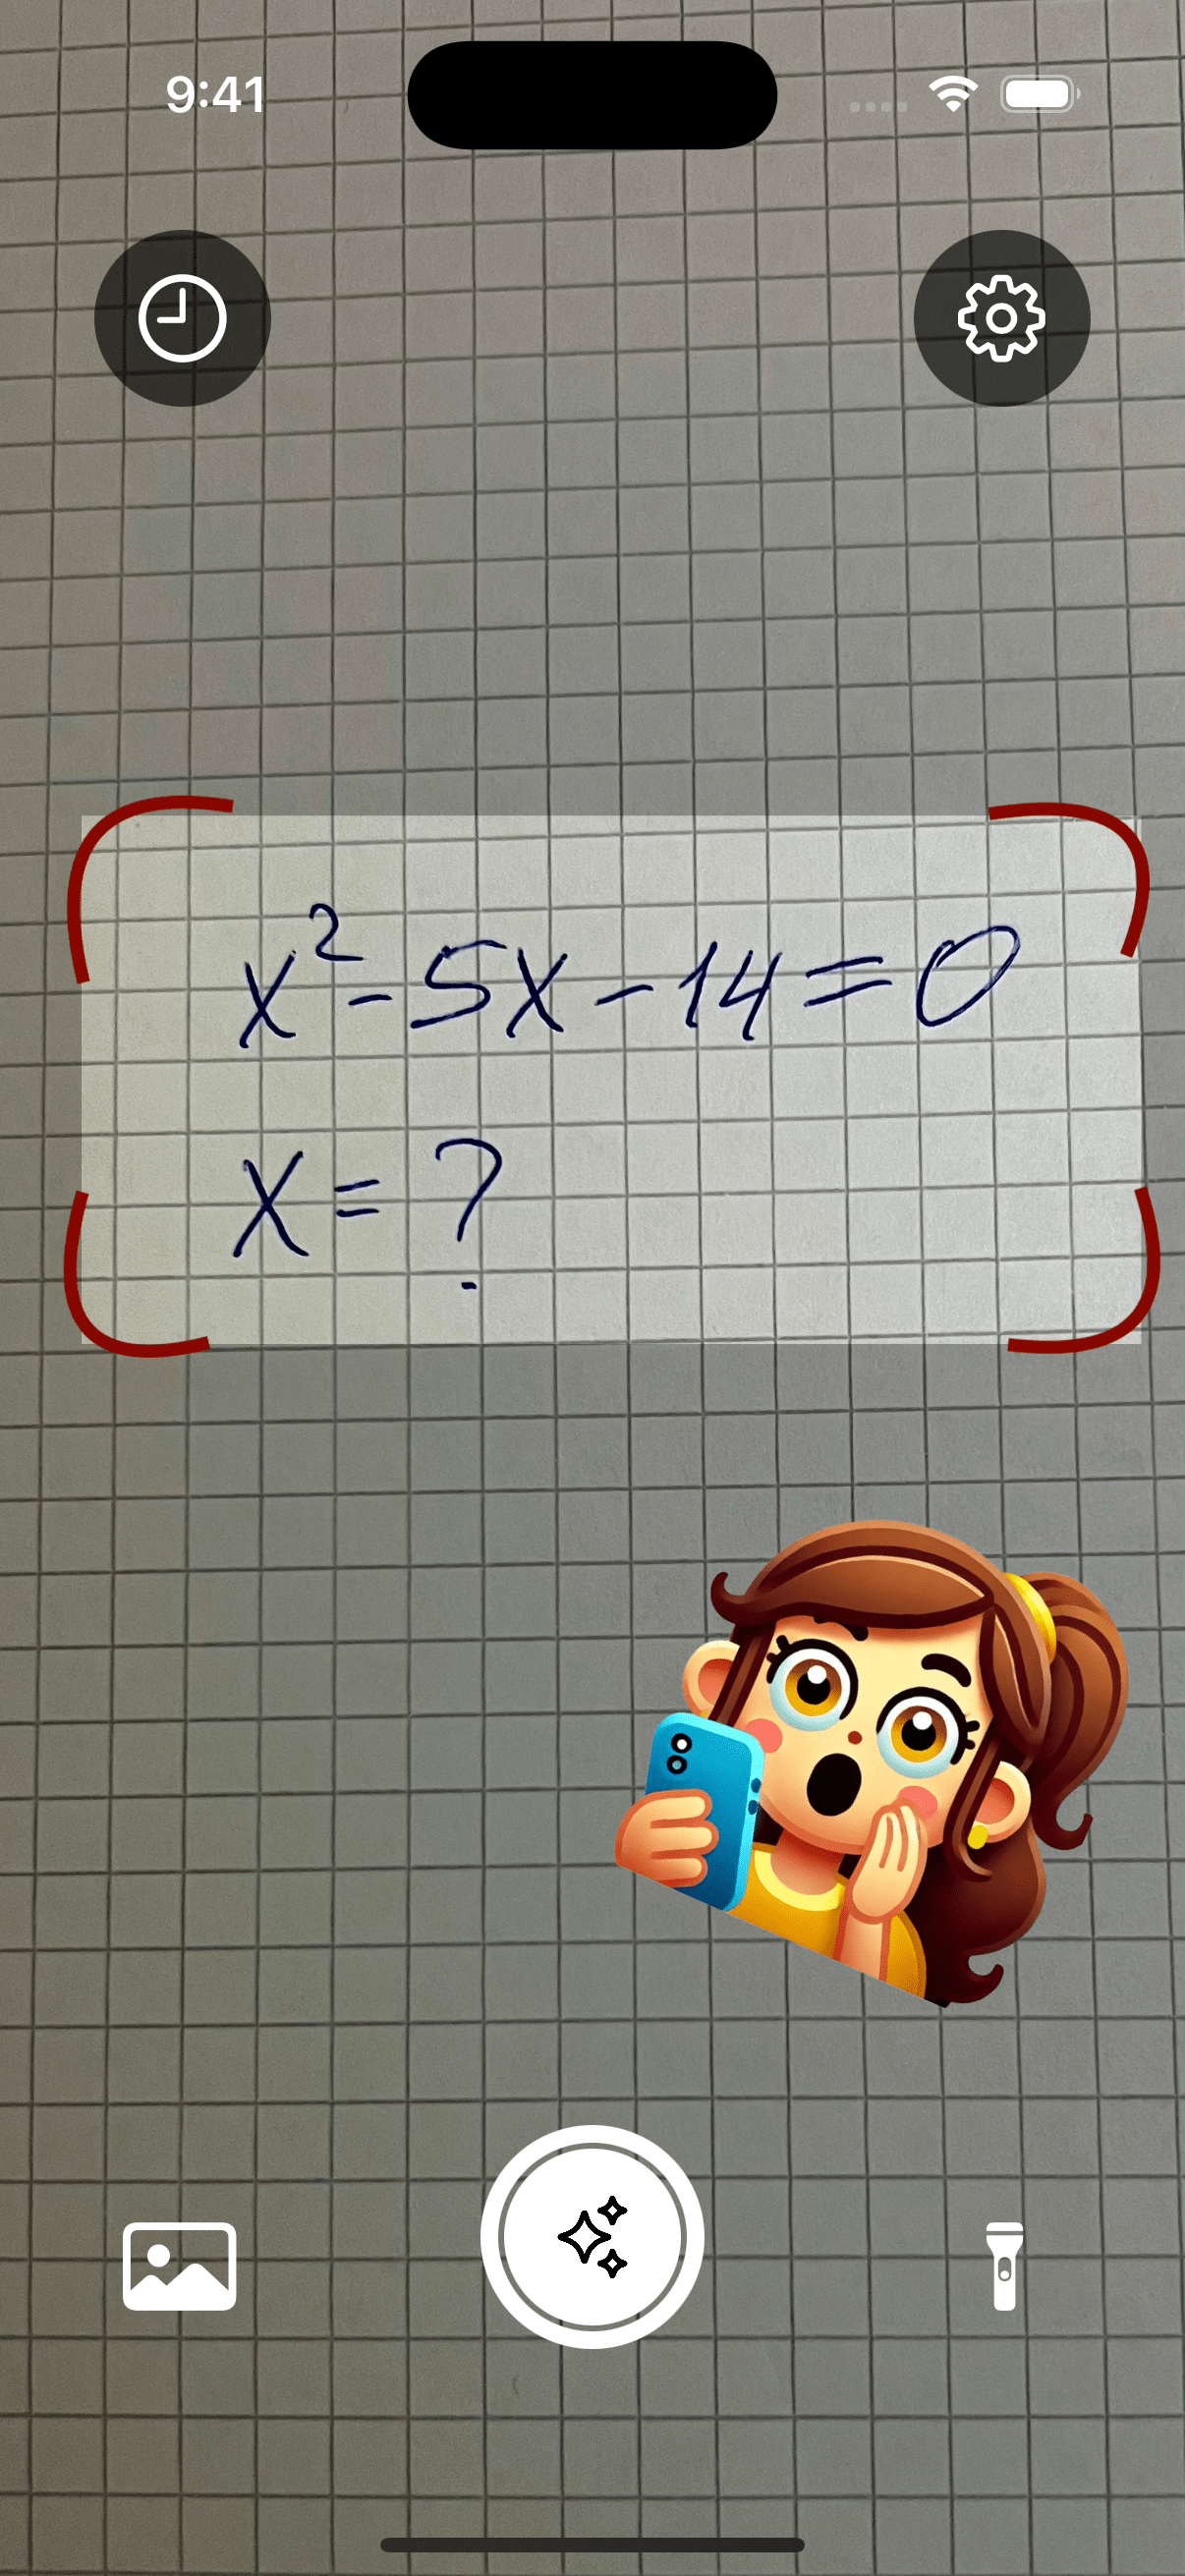 9:41
x² - 5x - 14 = 0
x = ?